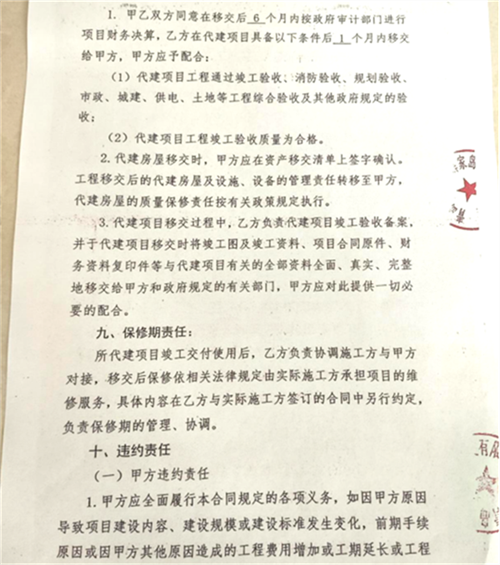 1. 甲乙双方同意在移交后 6 个月内按政府审计部门进行
项目财务决算，乙方在代建项目具备以下条件后 1 个月内移交
给甲方，甲方应予配合：
（1）代建项目工程通过竣工验收、消防验收、规划验收、
市政、城建、供电、土地等工程综合验收及其他政府规定的验
收；
（2）代建项目工程竣工验收质量为合格。
2.代建房屋移交时，甲方应在资产移交清单上签字确认。
工程移交后的代建房屋及设施、设备的管理责任转移至甲方，
代建房屋的质量保修责任按有关政策规定执行。
3.代建项目移交过程中，乙方负责代建项目竣工验收备案，
并于代建项目移交时将竣工图及竣工资料、项目合同原件、财
务资料复印件等与代建项目有关的全部资料全面、真实、完整
地移交给甲方和政府规定的有关部门，甲方应对此提供一切必
要的配合。
九、保修期责任：
所代建项目竣工交付使用后，乙方负责协调施工方与甲方
对接，移交后保修依相关法律规定由实际施工方承担项目的维
修服务，具体内容在乙方与实际施工方签订的合同中另行约定，
负责保修期的管理、协调。
十、违约责任
（一）甲方违约责任
1.甲方应全面履行本合同规定的各项义务，如因甲方原因
导致项目建设内容、建设规模或建设标准发生变化，前期手续
原因或因甲方其他原因造成的工程费用增加或工期延长或工程